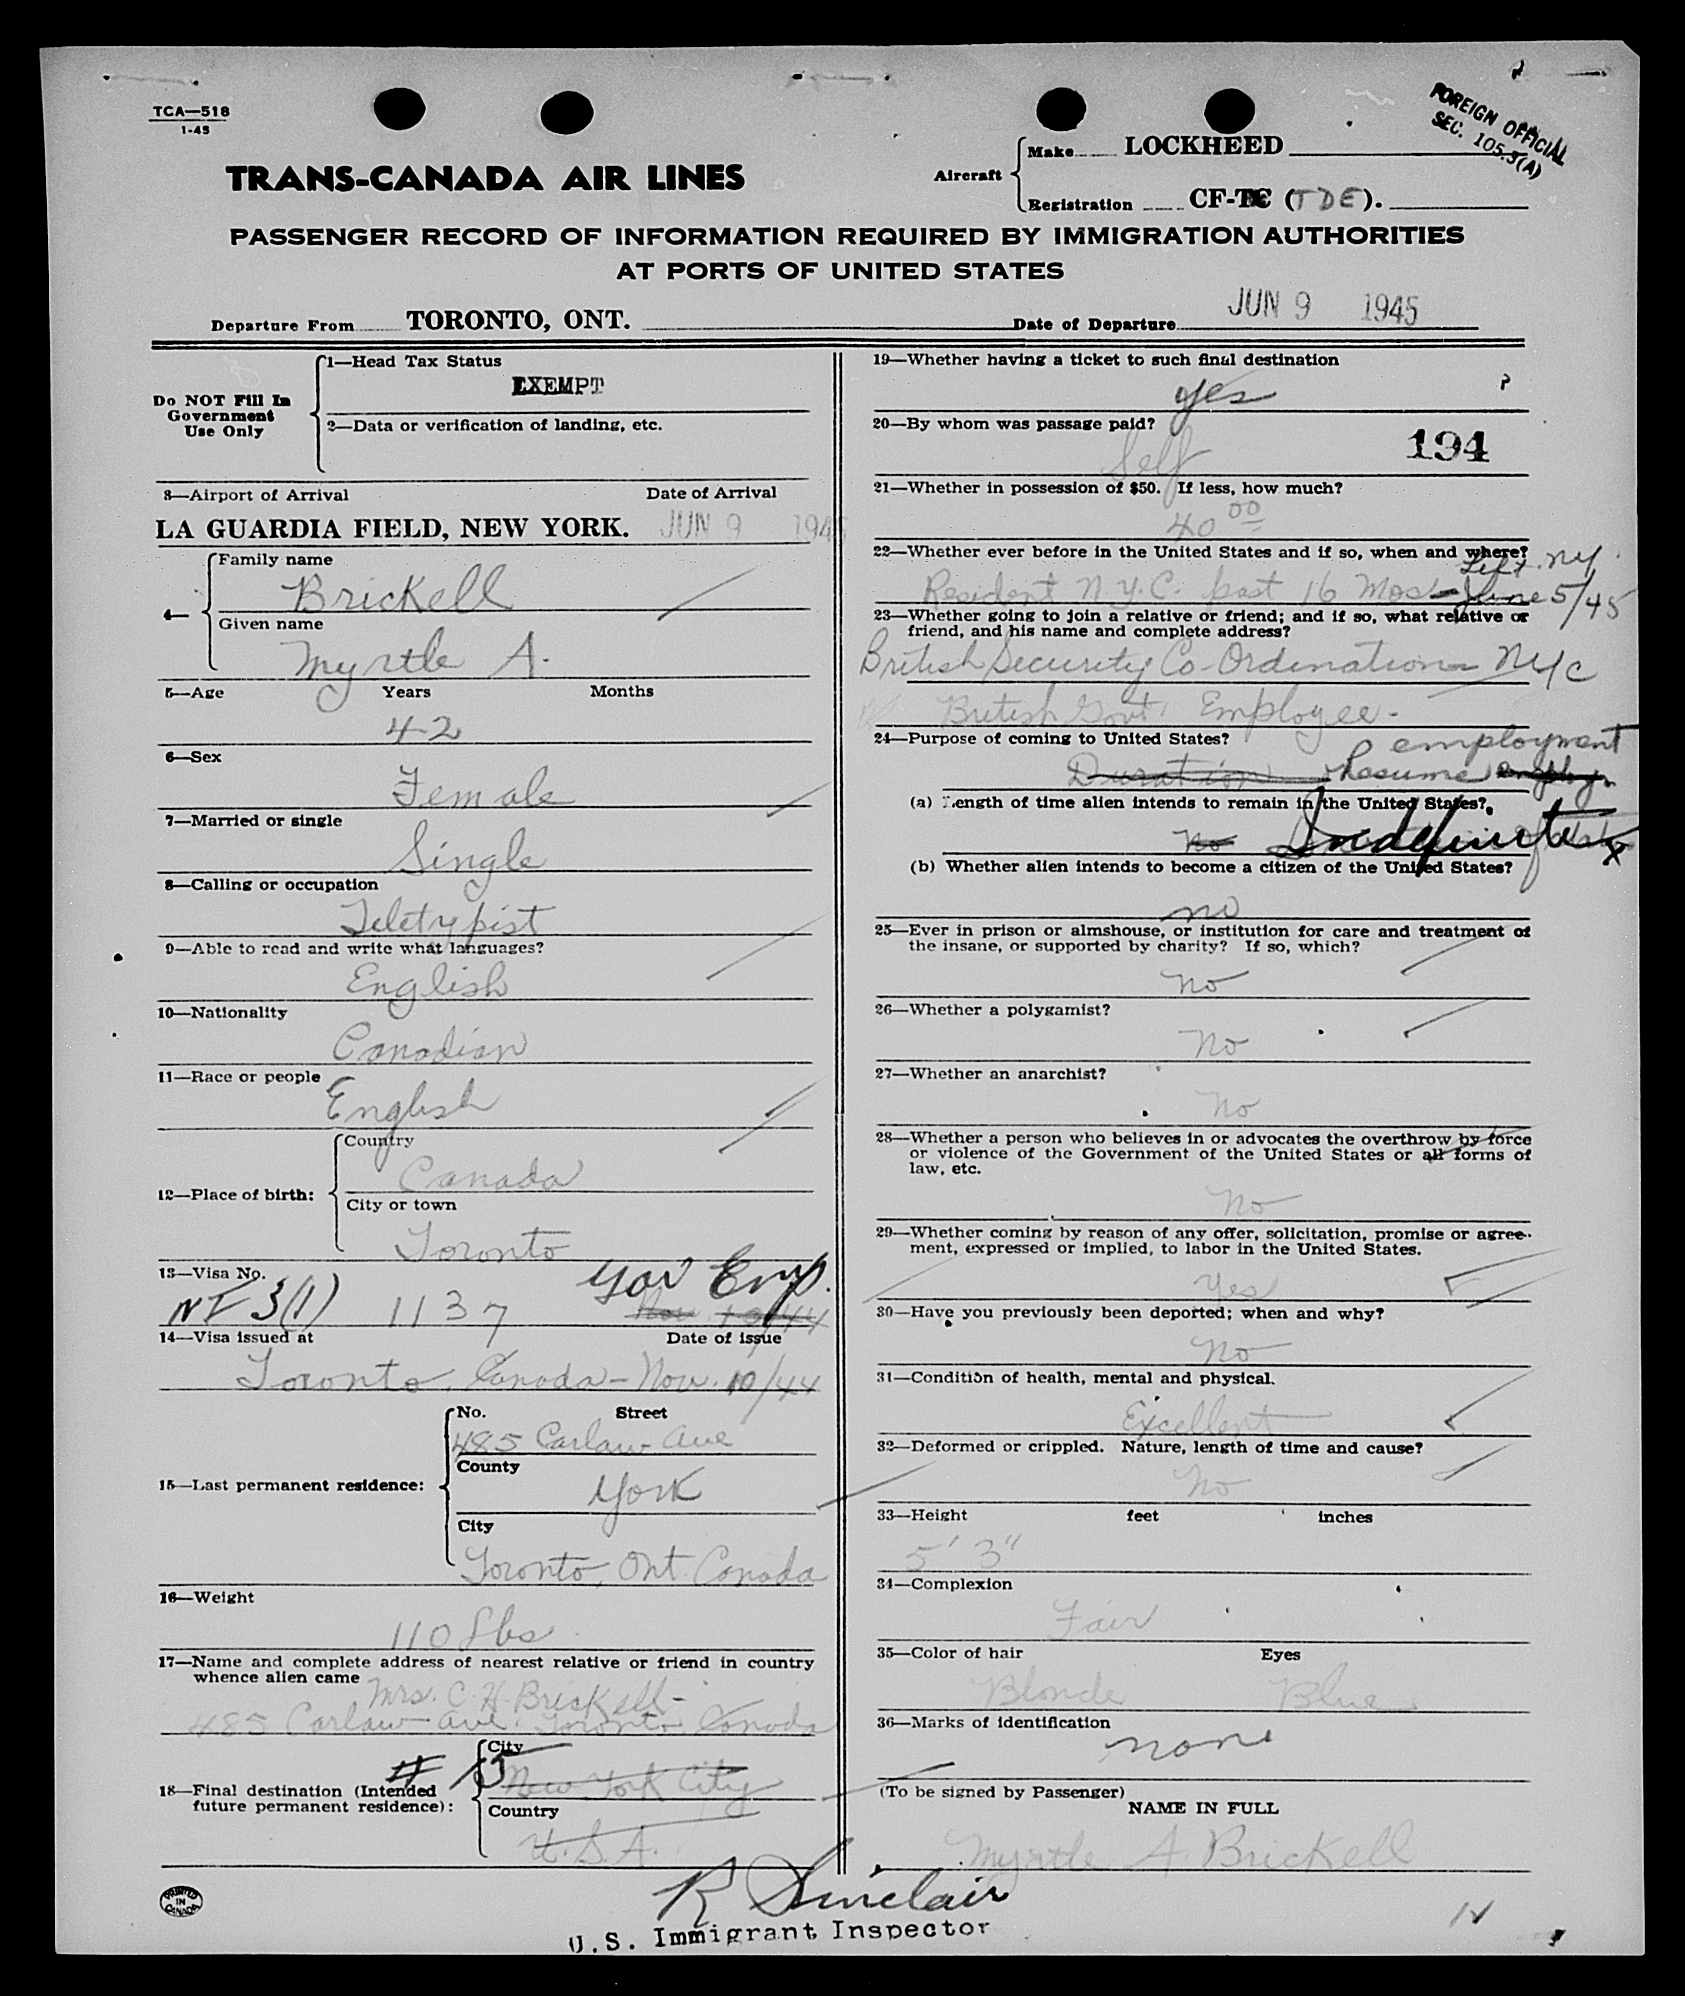 TCA—518
1-45
FOREIGN OFFICIAL
SEC. 105.3(A)
TRANS-CANADA AIR LINES
Aircraft
Make LOCKHEED
Registration CF-TC (TDE).
PASSENGER RECORD OF INFORMATION REQUIRED BY IMMIGRATION AUTHORITIES
AT PORTS OF UNITED STATES
Departure From TORONTO, ONT.
Date of Departure JUN 9 1945
Do NOT Fill In
Government
Use Only
1—Head Tax Status
EXEMPT
2—Data or verification of landing, etc.
3—Airport of Arrival Date of Arrival
LA GUARDIA FIELD, NEW YORK. JUN 9 1945
4—
Family name
Brickell
Given name
Myrtle A.
5—Age Years Months
42
6—Sex
Female
7—Married or single
Single
8—Calling or occupation
Teletypist
9—Able to read and write what languages?
English
10—Nationality
Canadian
11—Race or people
English
12—Place of birth:
Country
Canada
City or town
Toronto
13—Visa No. Gov Emp.
NI 3(1) 1137 Nov 10/44
14—Visa issued at Date of issue
Toronto, Canada - Nov. 10/44
15—Last permanent residence:
No. Street
485 Carlaw Ave
County
York
City
Toronto, Ont. Canada
16—Weight
110 Lbs
17—Name and complete address of nearest relative or friend in country
whence alien came
Mrs. C. H. Brickell -
485 Carlaw Ave. Toronto Canada
18—Final destination (Intended
future permanent residence):
# 15
City
New York City
Country
U.S.A.
19—Whether having a ticket to such final destination
yes
20—By whom was passage paid?
Self
194
21—Whether in possession of $50. If less, how much?
40 00
22—Whether ever before in the United States and if so, when and where?
Left N.Y.
Resident N.Y.C. past 16 Mos - June 5/45
23—Whether going to join a relative or friend; and if so, what relative or
friend, and his name and complete address?
British Security Co-Ordination NYC
British Govt. Employee -
24—Purpose of coming to United States?
employment
Duration Resume employ
(a) Length of time alien intends to remain in the United States?
No Indefinite
(b) Whether alien intends to become a citizen of the United States?
no
25—Ever in prison or almshouse, or institution for care and treatment of
the insane, or supported by charity? If so, which?
No
26—Whether a polygamist?
No
27—Whether an anarchist?
No
28—Whether a person who believes in or advocates the overthrow by force
or violence of the Government of the United States or all forms of
law, etc.
No
29—Whether coming by reason of any offer, solicitation, promise or agree-
ment, expressed or implied, to labor in the United States.
Yes
30—Have you previously been deported; when and why?
No
31—Condition of health, mental and physical.
Excellent
32—Deformed or crippled. Nature, length of time and cause?
No
33—Height feet inches
5' 3"
34—Complexion
Fair
35—Color of hair Eyes
Blonde Blue
36—Marks of identification
none
(To be signed by Passenger)
NAME IN FULL
Myrtle A Brickell
R Sinclair
U.S. Immigrant Inspector
PRINTED
IN
CANADA